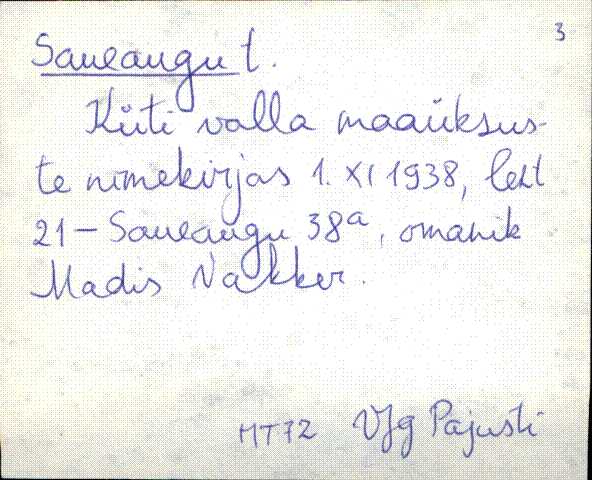 3
Saueaugu t.
Küti valla maaüksus-
te nimekirjas 1. XI 1938, leht
21 - Saueaugu 38a, omanik
Madis Vakker.
MT72 VJg Pajusti